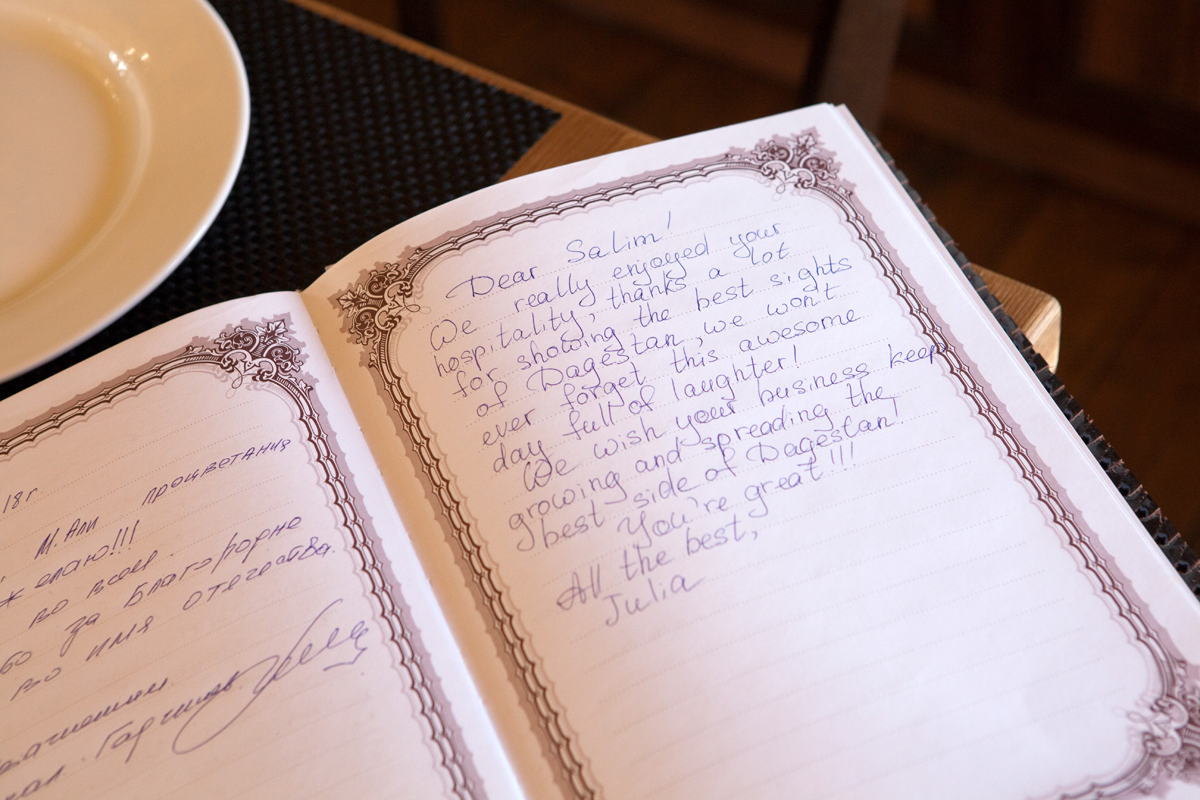 18 г.
М. Али процветания
желаю!!!
во всем.
за благородне
во имя отечества.
Dear Salim!
We really enjoyed your
hospitality, thanks a lot
for showing the best sights
of Dagestan, we won't
ever forget this awesome
day full of laughter!
We wish your business keep
growing and spreading the
best side of Dagestan!
You're great!!!
All the best,
Julia